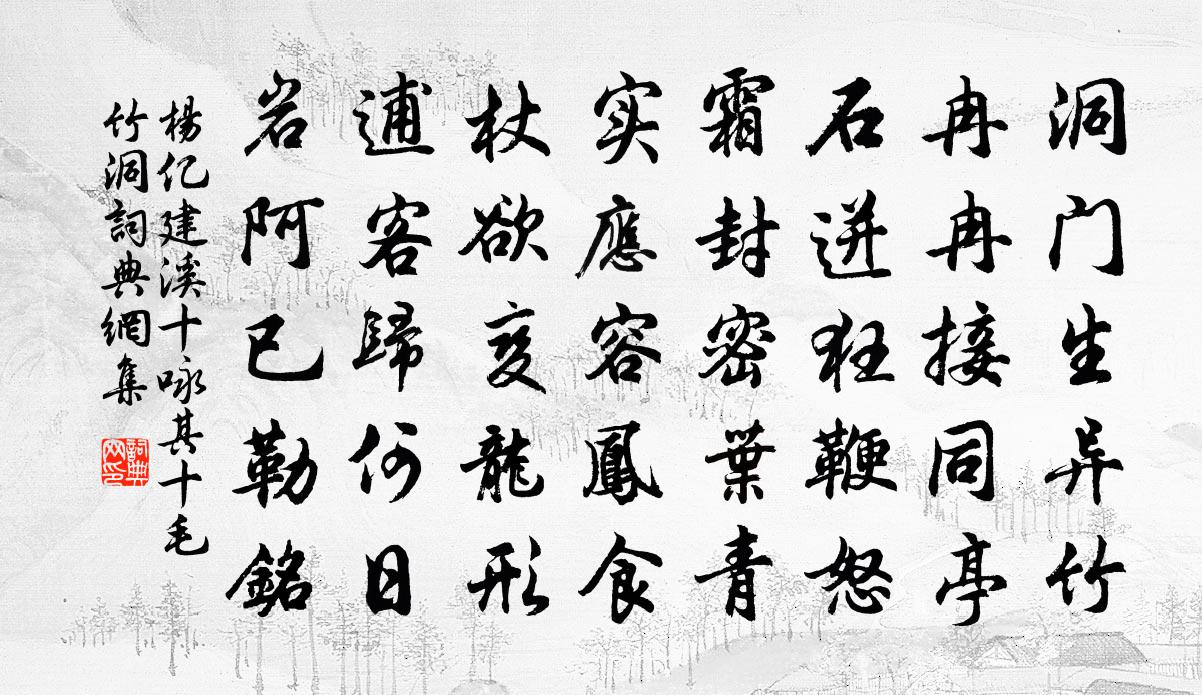 洞门生异竹
冉冉接同亭
石迸狂鞭怒
霜封密葉青
实應容鳳食
杖欲变龍形
逋客歸何日
岩阿已勒銘
楊亿建溪十咏其十毛
竹洞詞典網集
詞典
网印